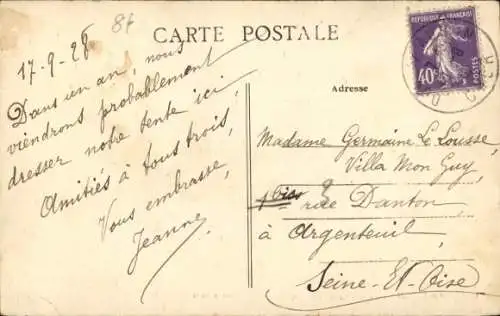 CARTE POSTALE
17-9-28
Dans un an, nous
viendrons probablement
dresser notre tente ici,
Amitiés à tous trois,
Vous embrasse,
Jeanne
RÉPUBLIQUE FRANÇAISE
40c
POSTES
Adresse
Madame Germaine Le Lousse,
Villa Mon Guy,
9 rue Danton
à Argenteuil,
Seine-Et-Oise